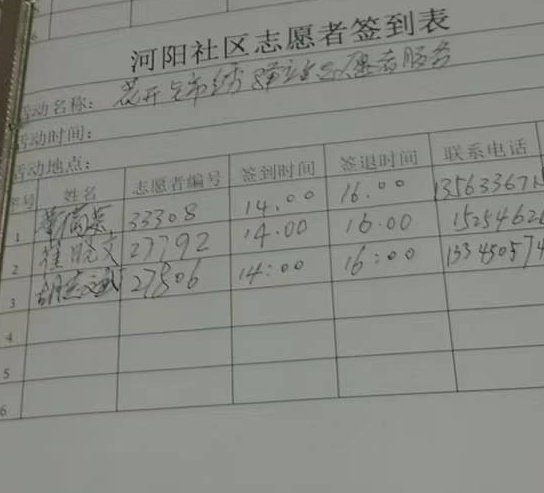 河阳社区志愿者签到表
活动名称：花开 锦绣 驿站志愿者服务
活动时间：
活动地点：
序号 姓名 志愿者编号 签到时间 签退时间 联系电话
1 33308 14.00 16.00 135633671
2 崔晓文 27792 14.00 16.00 1525462
3 胡志斌 27806 14:00 16:00 133450574
4
5
6